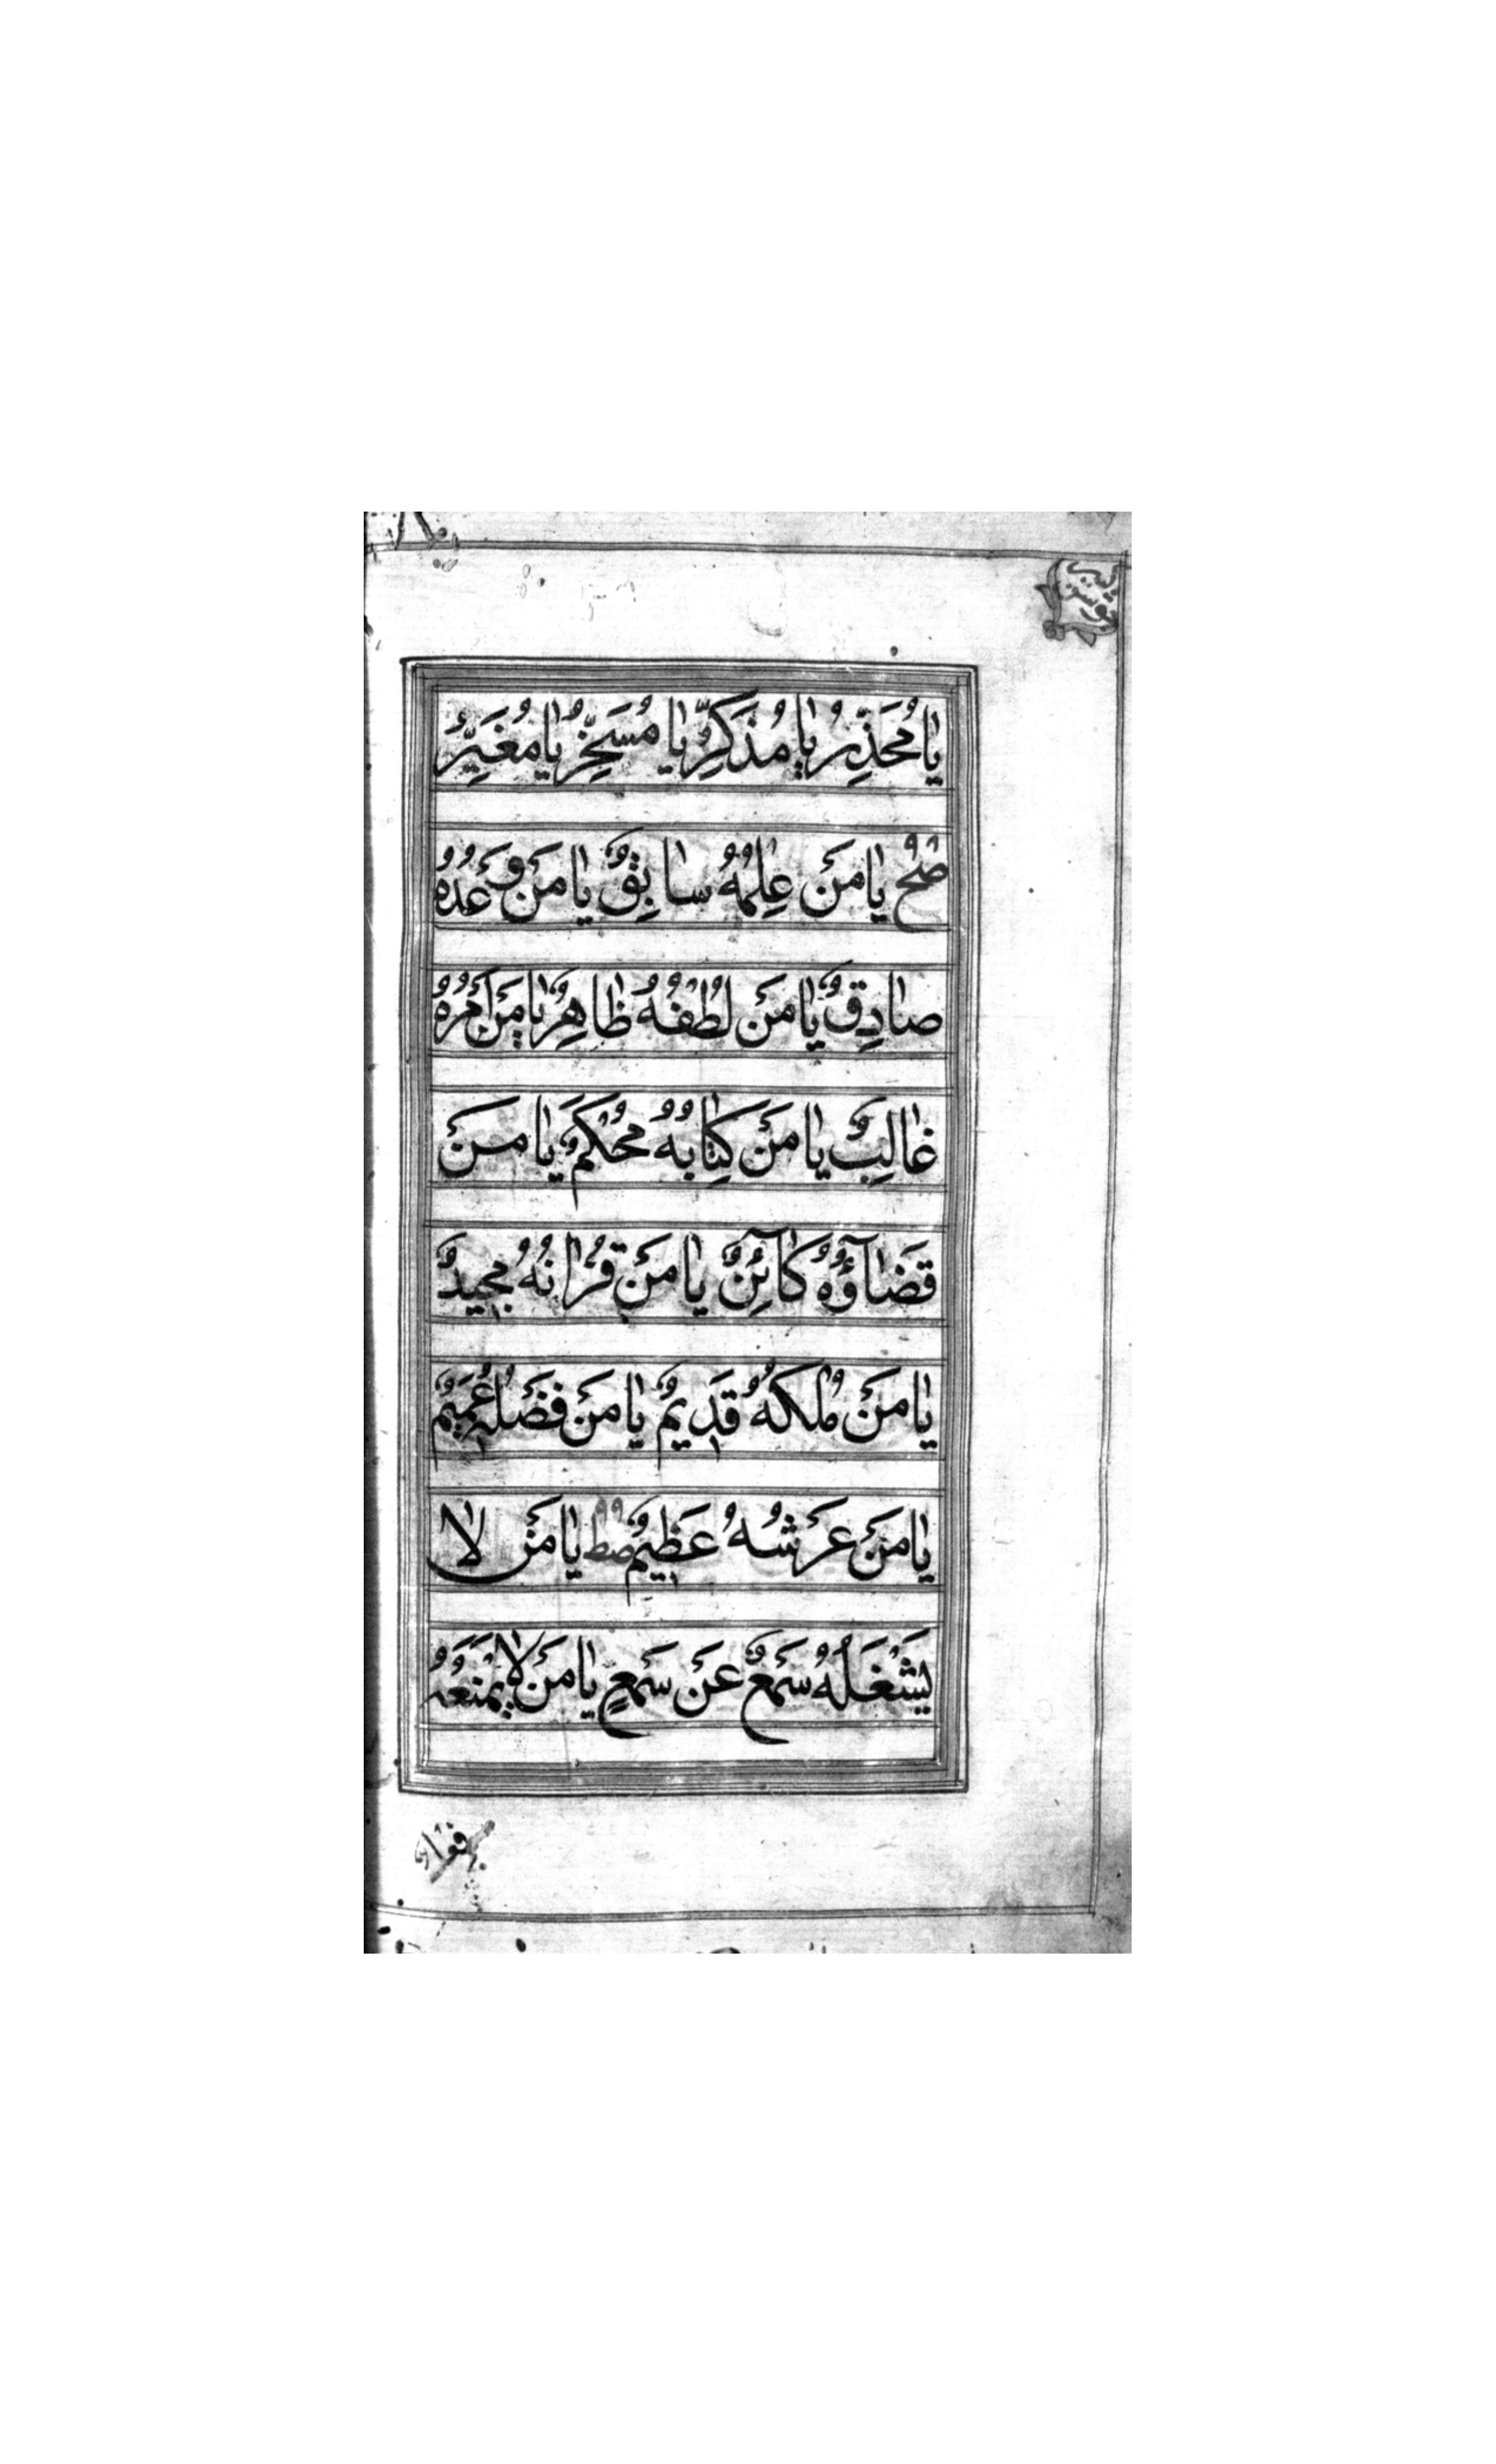 يا مُحَذِّرُ يا مُذَكِّرُ يا مُسَخِّرُ يا مُغَيِّرُ
صح يا مَنْ عِلْمُهُ سابِقٌ يا مَنْ وَعْدُهُ
صادِقٌ يا مَنْ لُطْفُهُ ظاهِرٌ يا مَنْ اَمْرُهُ
غالِبٌ يا مَنْ كِتابُهُ مُحْكَمٌ يا مَنْ
قَضاۤؤُهُ كاۤئِنٌ يا مَنْ قُرْانُهُ مَجيدٌ
يا مَنْ مُلْكُهُ قَديمٌ يا مَنْ فَضْلُهُ عَميمٌ
يا مَنْ عَرْشُهُ عَظيمٌ صط يا مَنْ لا
يَشْغَلُهُ سَمْعٌ عَنْ سَمْعٍ يا مَنْ لا يَمْنَعُهُ